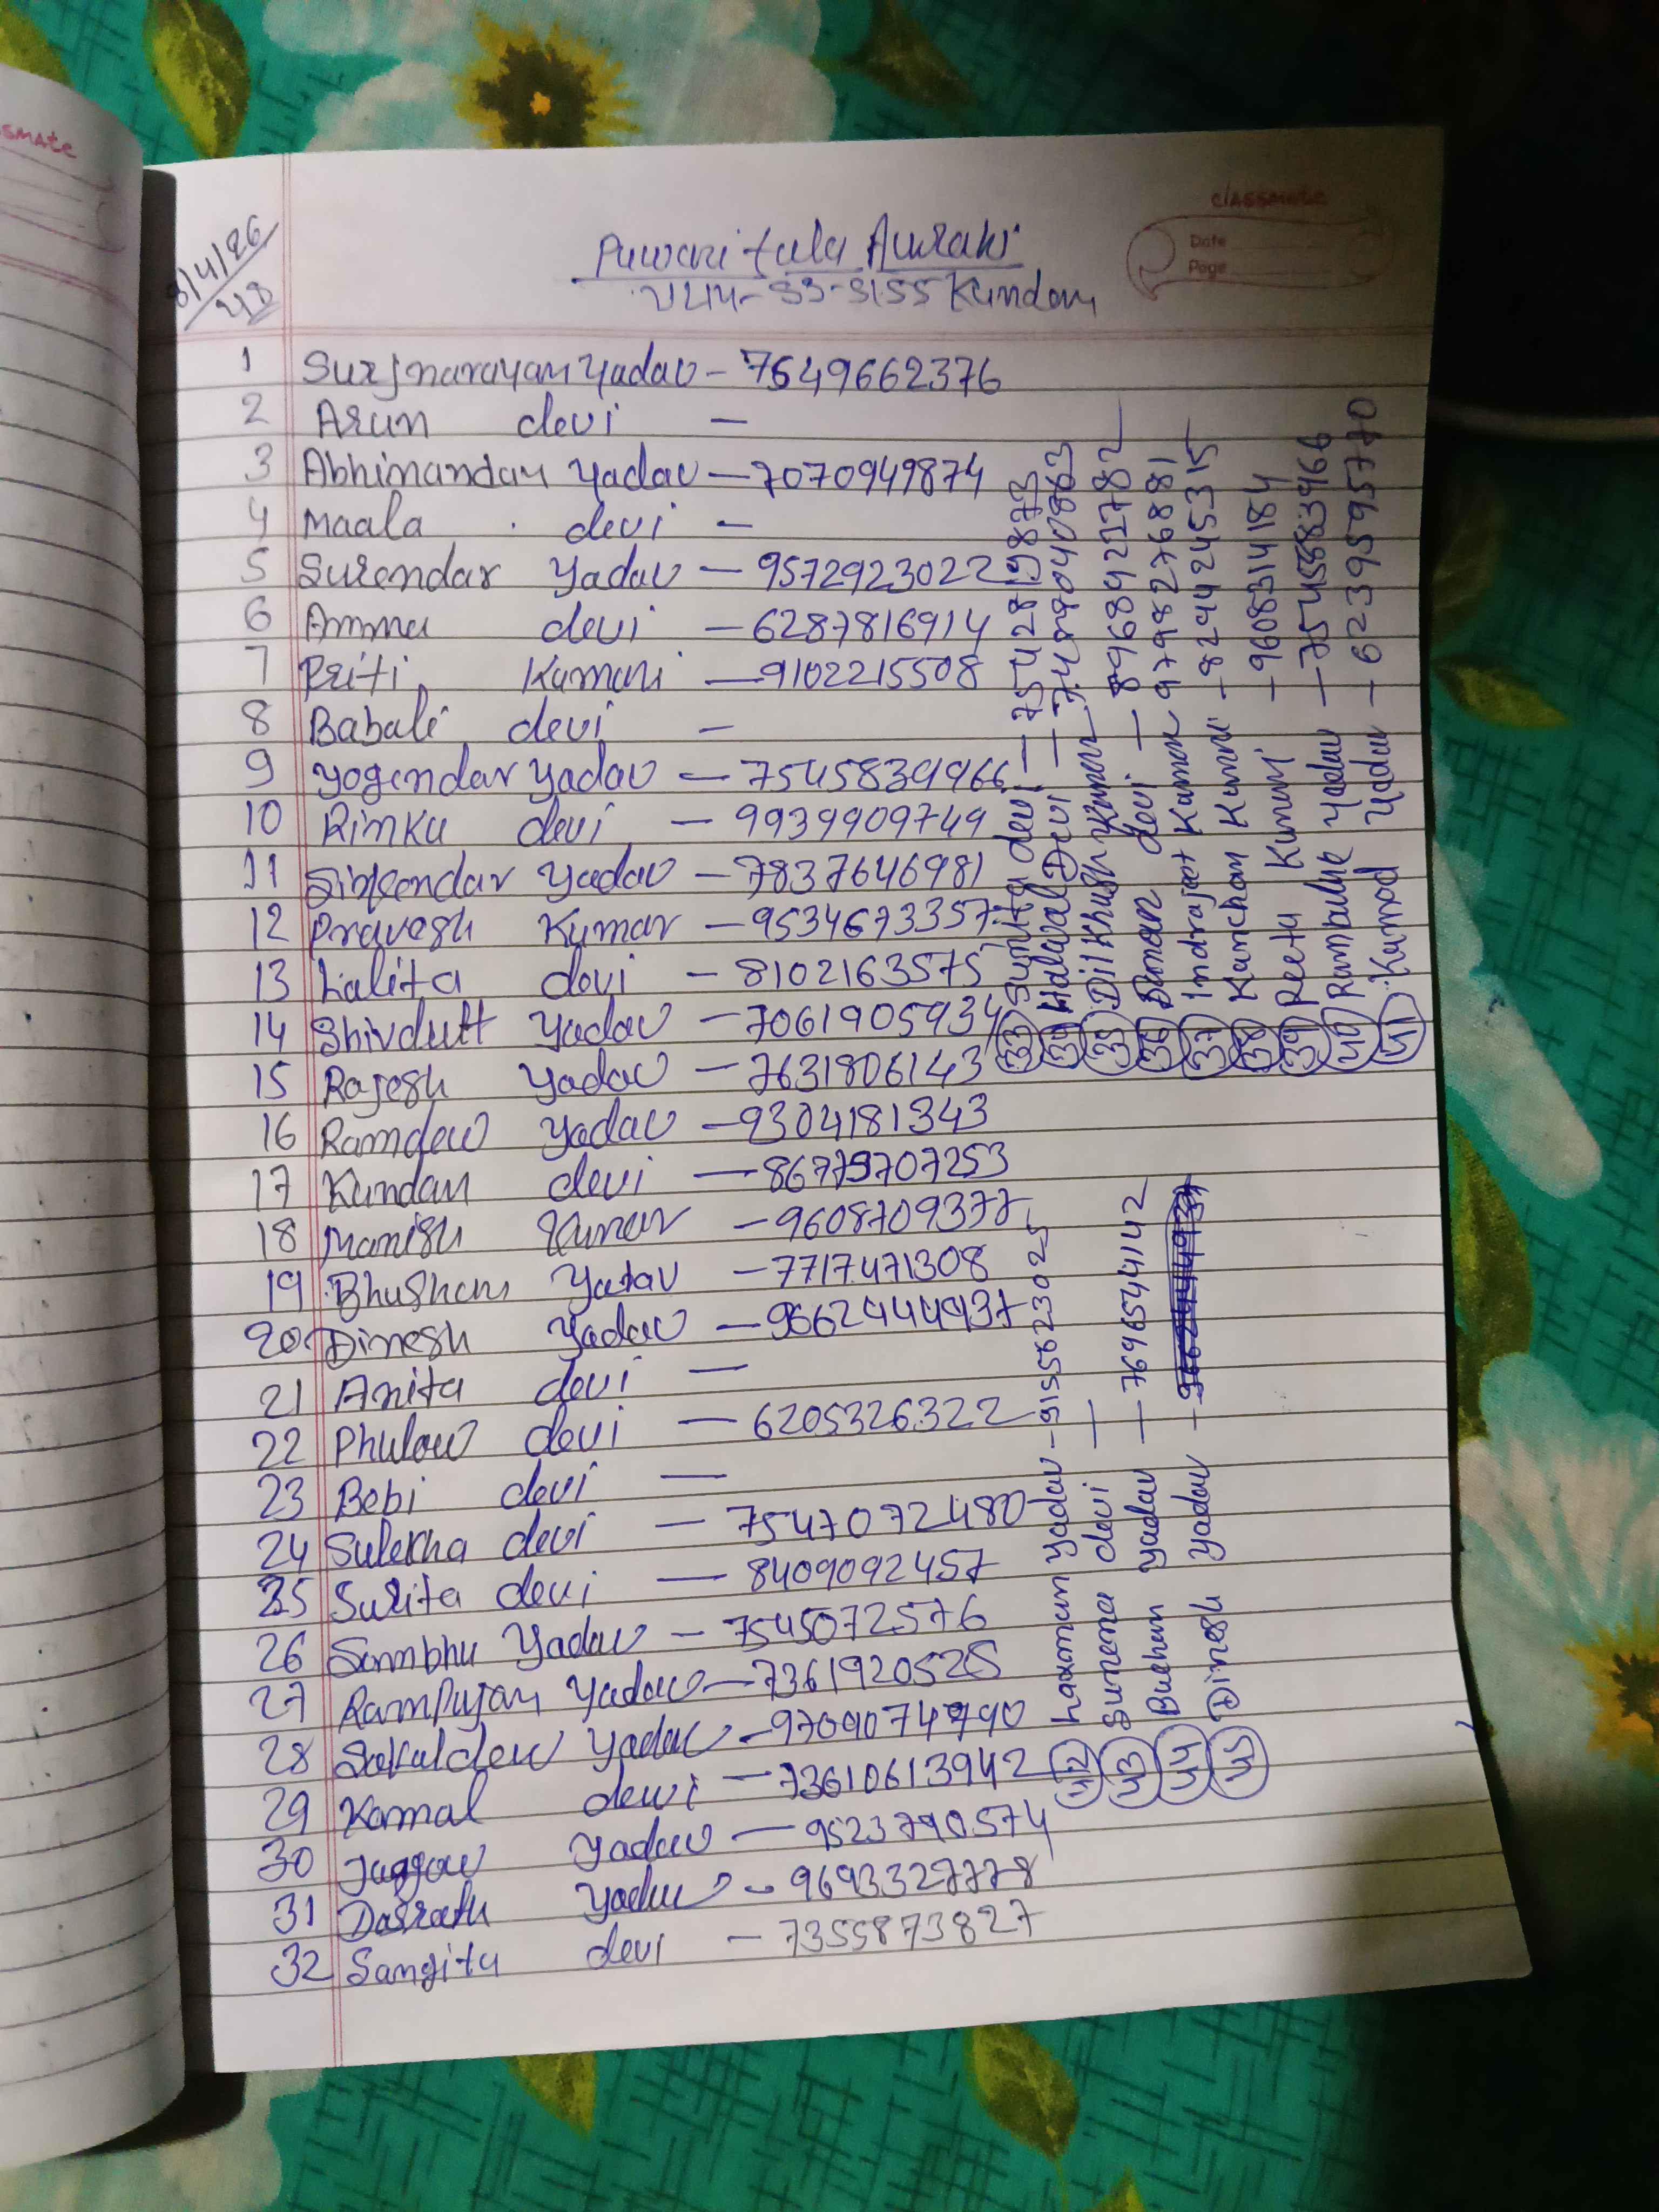 classmate
Date
Page
8/4/26
Puwari tula Auraki
Kundan
1 Surjnarayan Yadav - 7549662376
2 Arun devi -
3 Abhinandan Yadav - 7070949874
4 Maala devi -
5 Surendar Yadav - 9572923022
6 Ammu devi - 6287816914
7 Priti Kumari - 9102215508
8 Babali devi -
9 Yogendar Yadav - 7545839966
10 Rinku devi - 9939909749
11 Sikendar Yadav - 7837646981
12 Pravesh Kumar - 9534673357
13 Lalita devi - 8102163575
14 Shivdutt Yadav - 7061905934
15 Rajesh Yadav - 7631806143
16 Ramdew Yadav - 9304181343
17 Kundan devi -
18 Manish Kumar - 9608709377
19 Bhushan Yadav - 7717471308
20 Dinesh Yadav - 9662444937
21 Anita devi -
22 Phulow devi - 6205326322
23 Bebi devi -
24 Sulekha devi - 7547072480
25 Surita devi - 8409092457
26 Sambhu Yadav - 7545072576
27 RamPujan Yadav - 7361920525
28 Sakaldew Yadav -
29 Kamal dewi - 73610613942
30 Juggow Yadav - 9523790574
31 Dasrath Yadav - 9693327778
32 Sangita devi - 7355873827
33 Sunita devi - 7542819873
34 Halawal Devi -
35 Dilkhush Kumar - 8968421782
36 devi -
37 Indrajeet Kumar 9798276881
38 Kanchan Kumari - 82944245315
39 Reeta Kumari - 9608314184
40 Rambalak Yadav -
41 Kamod Yadav - 6239595770
42 Laxman yadav - 9155823025
43 Sunena devi -
44 Bushan yadav - 7696544142
45 Dinesh yadav -